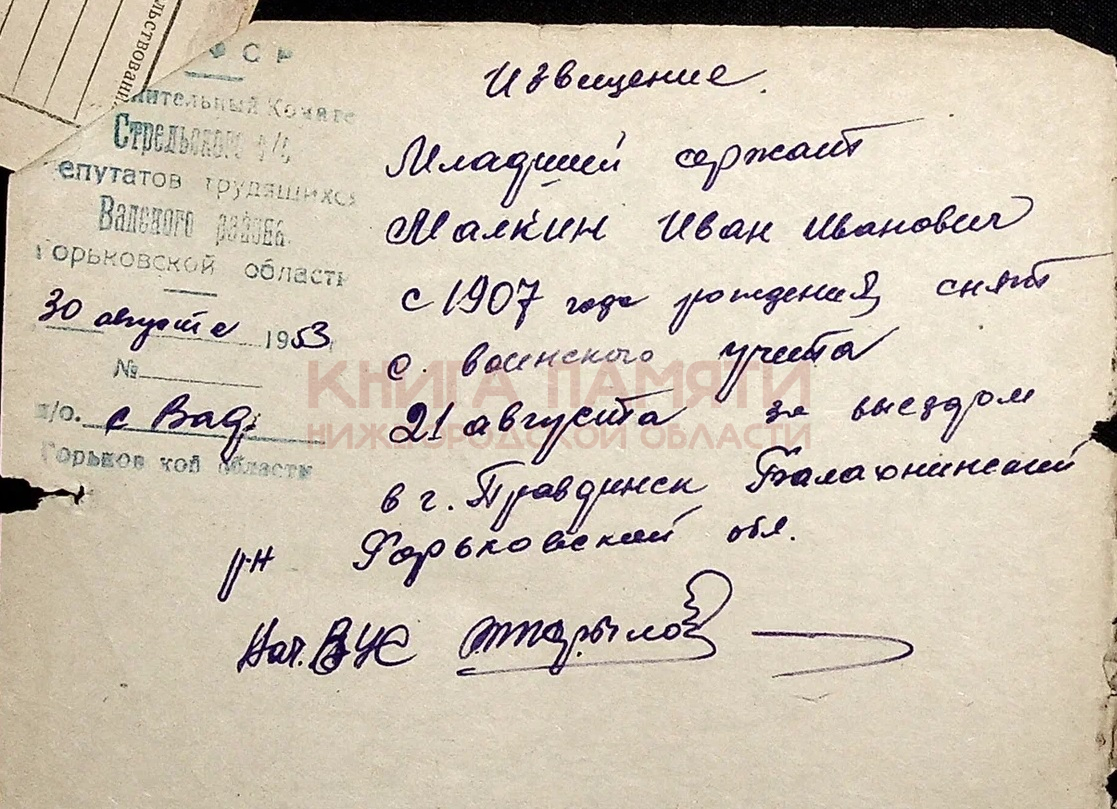 льствовани
ФСР
нительный Комите
Стрельского с/с
епутатов трудящихся
Вадского района
Горьковской области
30 августа 1953
№
п/о. с Вад.
Горьков кой области
Извещение.
Младший сержант
Малкин Иван Иванович
с 1907 года рождения, снят
с воинского учета
21 августа за выездом
в г. Правдинск Балахнинский
р-н Горьковской обл.
Нач. ВУС
КНИГА ПАМЯТИ
НИЖЕГОРОДСКОЙ ОБЛАСТИ